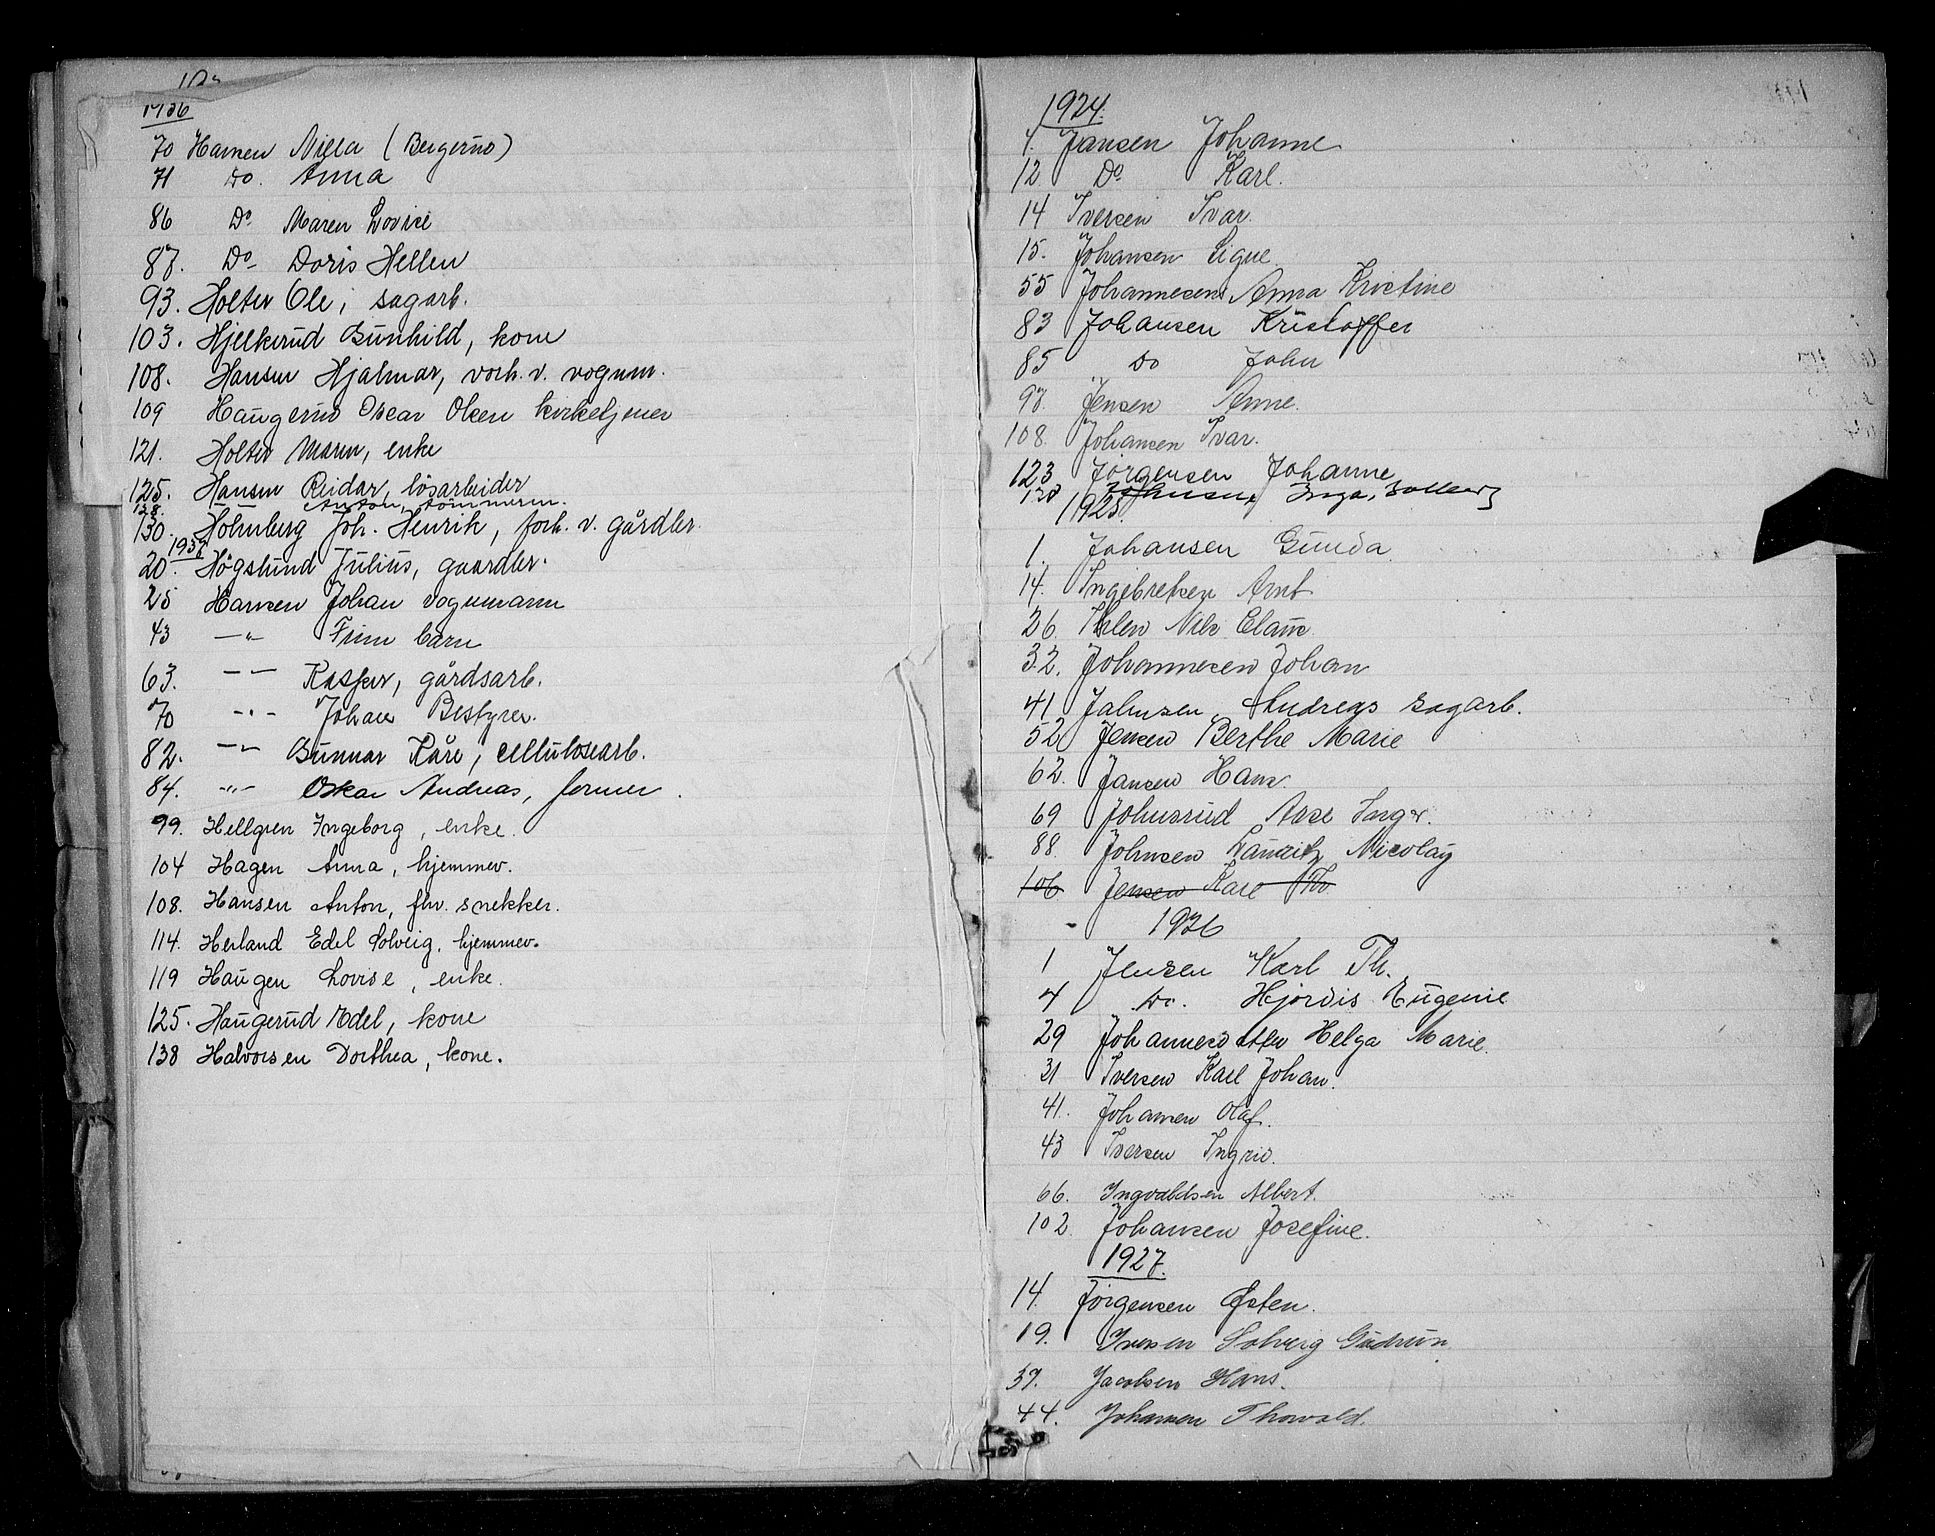 1936
70 Hansen Nilla (Bergerud)
71 Do. Anna
86 Do Maren Lovise
87. Do Doris Hellen
93. Holter Ole, sagarb.
103. Hjelkerud Gunhild, kone
108. Hansen Hjalmar, vognm.
109 Haugerud Oscar Olsen kirketjener
121. Holter Maren, enke
125. Hansen Reidar, løsarbeider
128. Anton, tømmerm.
130. Holmberg Joh. Henrik, forh. v. gårdbr.
1937
20. Høgslund Julius, gaardbr.
25 Hansen Johan vognmann
43 —"— Finn barn
63. —"— Kasper, gårdsarb.
70 —"— Johan Bestyrer.
82. —"— Gunnar Kåre, cellulosearb.
84. —"— Oskar Andreas, former.
99. Hellgren Ingeborg, enke.
104 Hagen Anna, hjemmev.
108. Hansen Anton, fhv. snekker.
114. Herland Edel Solveig, hjemmev.
119 Haugen Lovise, enke.
125. Haugerud Edel, kone
138 Halvorsen Dorthea, kone.
1924.
1. Jansen Johanne
12 Do Karl.
14 Iversen Ivar.
15. Johansen Signe.
55 Johannesen Anna Kristine
83 Johansen Kristoffer
85 Do John
97. Jensen Anne.
108. Johansen Ivar.
123 Jørgensen Johanne
Johansen, Inga, Solberg
1925.
1. Johansen Gunda
14. Ingebretsen Arnt
26. Ihlen Nils Claus
32. Johannesen Johan
41 Johnsen Andreas sagarb.
52 Jensen Berthe Marie
62. Jansen Hans.
69 Johnsrud Aase Inger.
88. Johnsen Lauritz Nicolay
106 Jensen Karl Th.
1926
1 Jensen Karl Th.
4 Do. Hjordis Eugenie
29 Johannesdatter Helga Marie.
31 Iversen Karl Johan.
41. Johansen Olaf.
43 Iversen Ingrid.
66. Ingvaldsen Albert.
102 Johansen Josefine.
1927.
14. Jørgensen Østen.
19. Iversen Solveig Gudrun
37. Jacobsen Hans.
44. Johansen Thorvald.